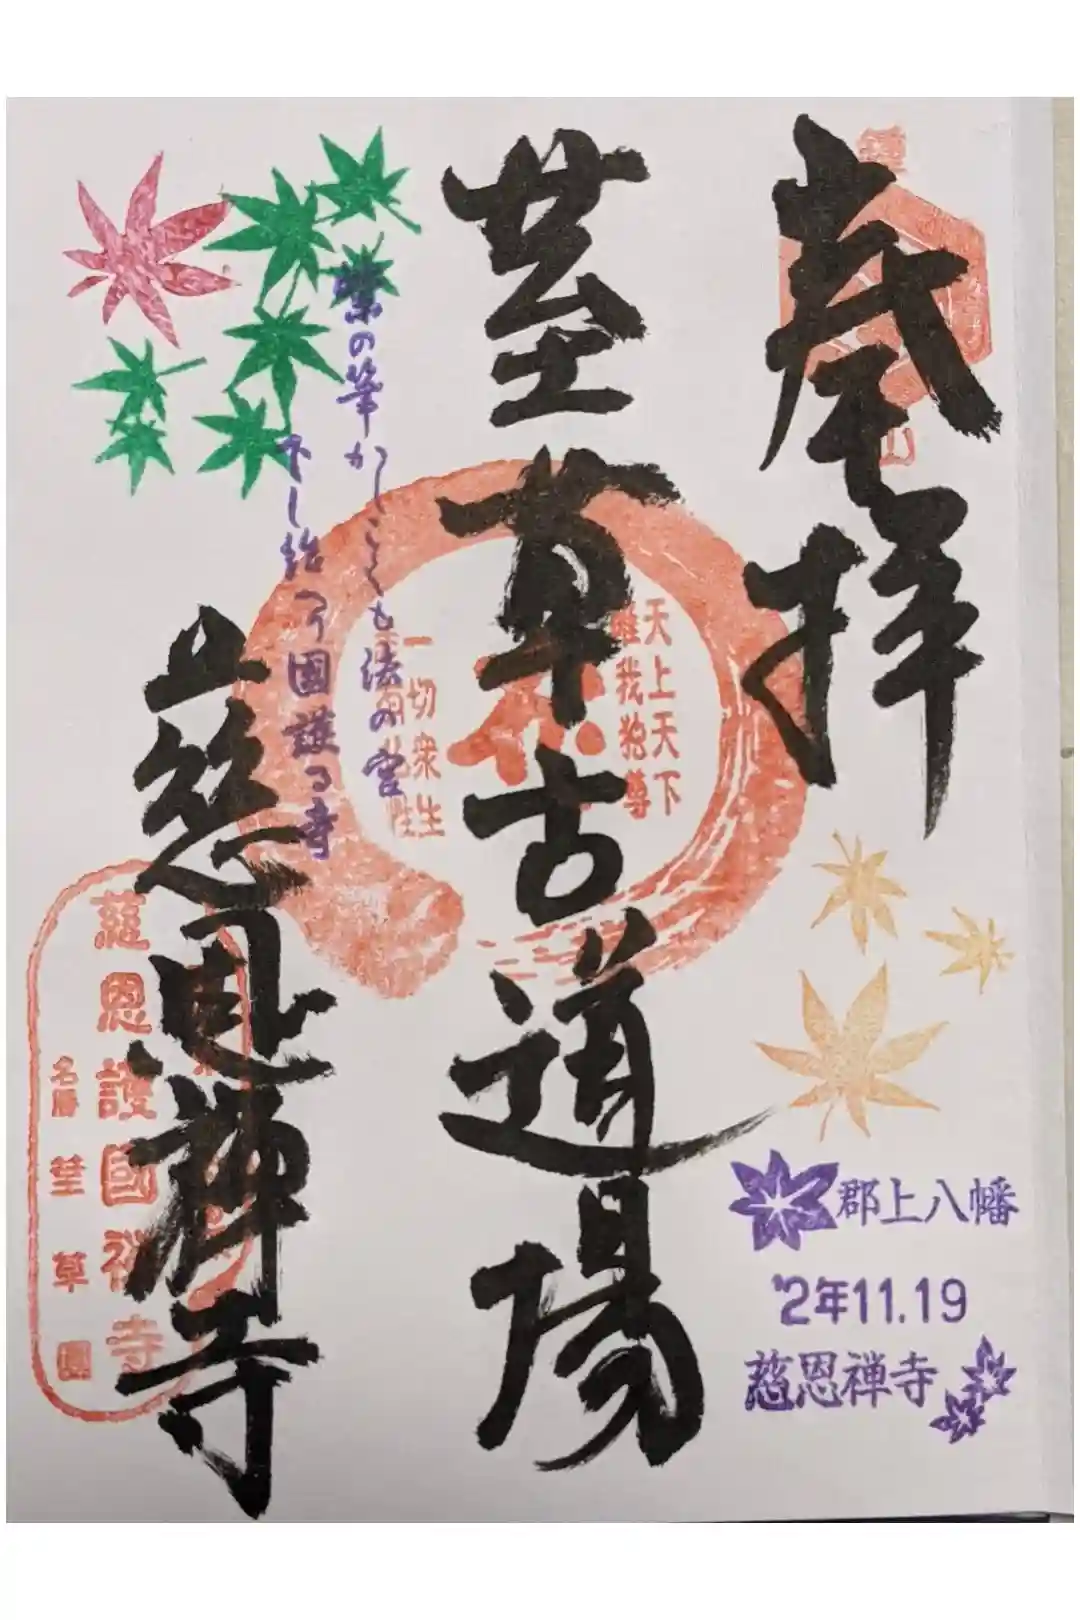 奉拝
荎草古道場
慈恩禅寺
天上天下
唯我独尊
一切衆生
紫の筆かしこくも法の宮
下し給へり国護る寺
慈恩護國禅寺
名勝 荎草園
郡上八幡
'2年11.19
慈恩禅寺